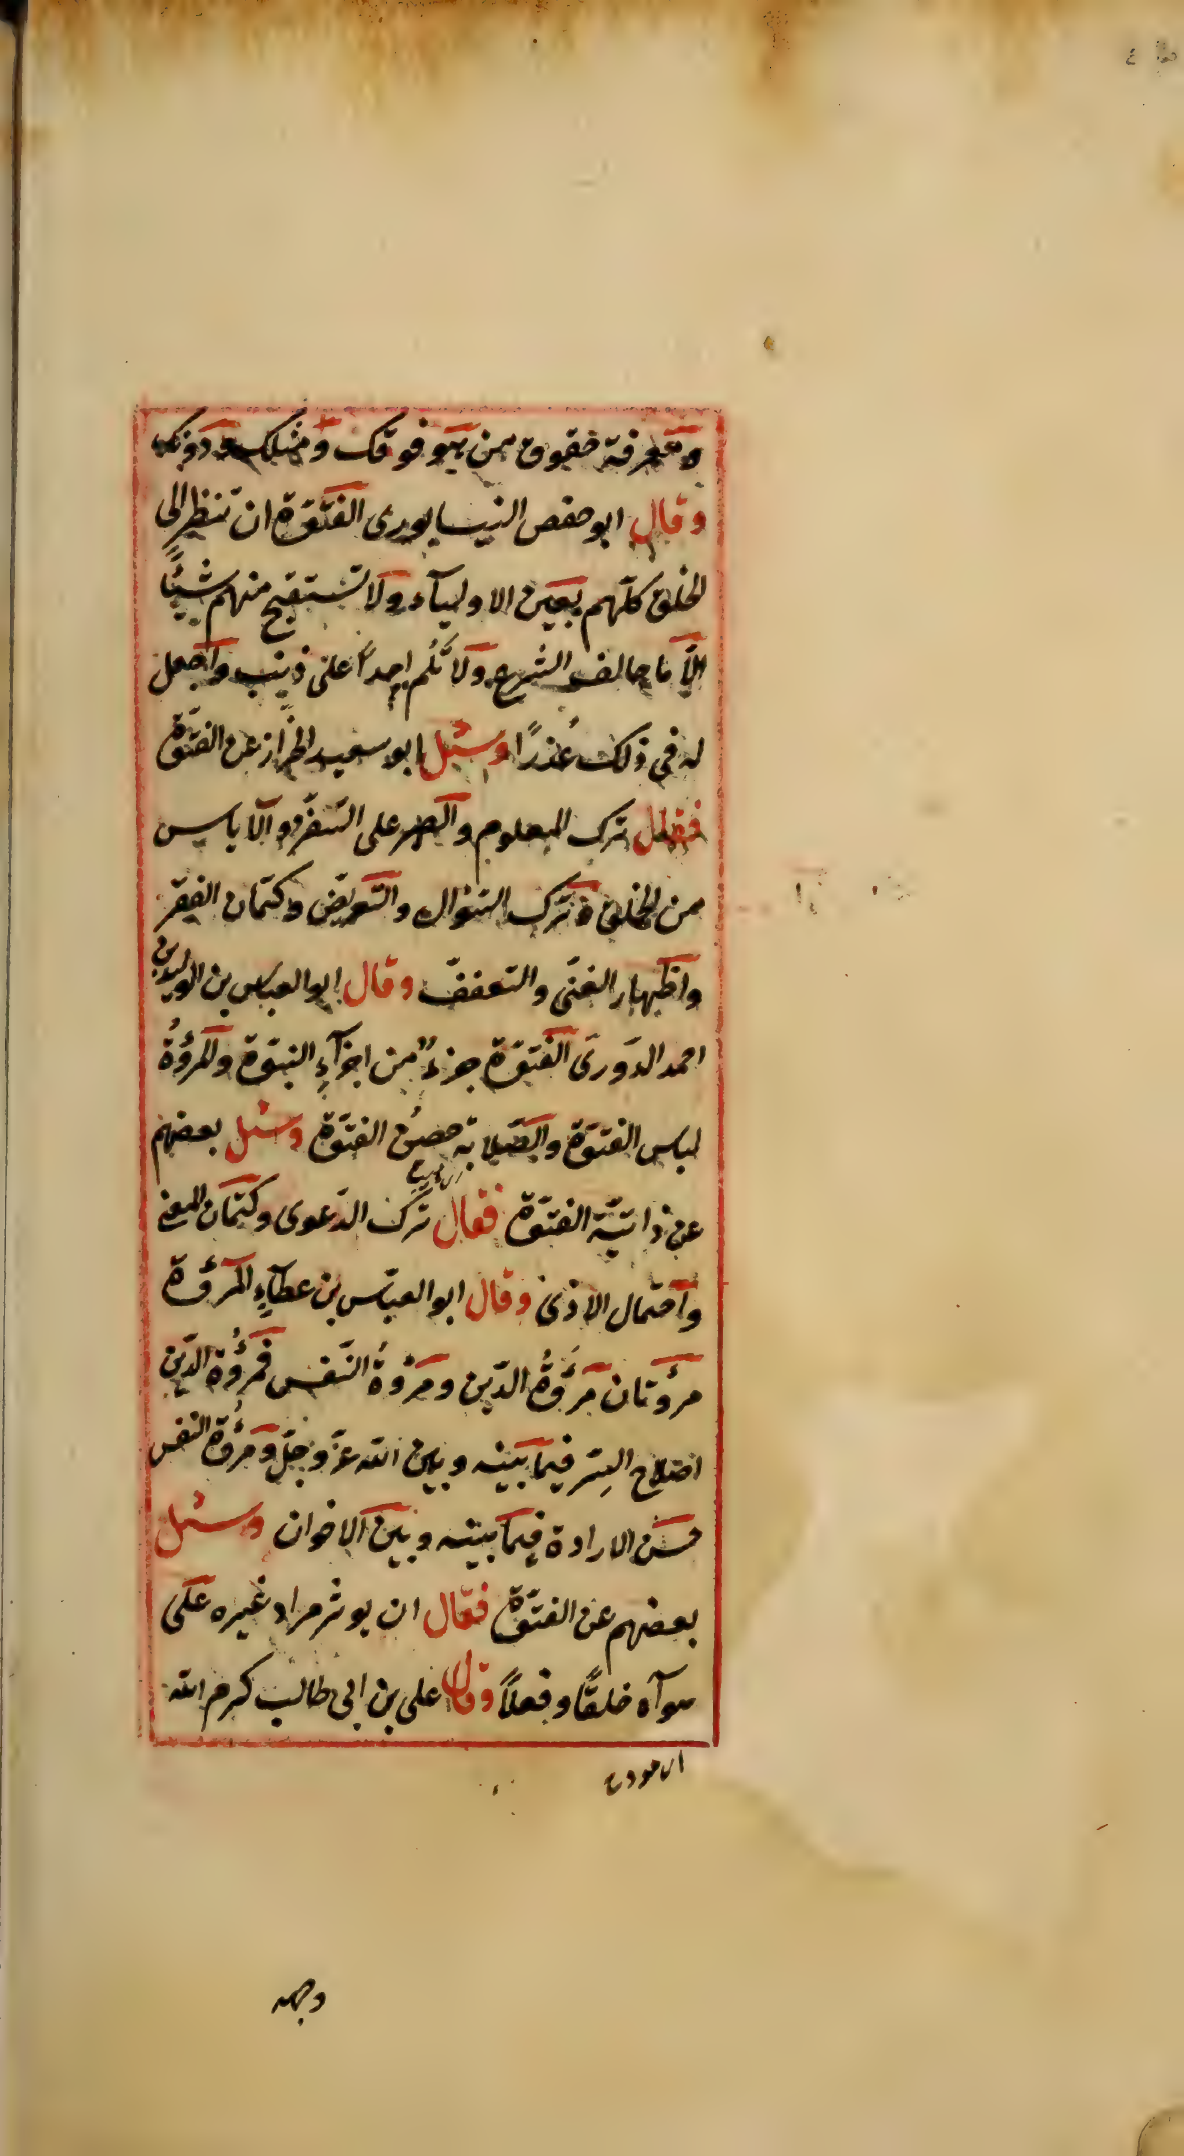 ومعرفة حقوق من هو فوقك ومثلك ودونك
وقال ابو حفص النيسابورى الفتوّة ان تنظر الى
الخلق كلّهم بعين الاوليآء ولا تستقبح منهم شيئًا
الّا ما خالف الشرع ولا تلُم احداً على ذنب واجعل
له فى ذلك عُذرًا وسئل ابو سعيد الخرّاز عن الفتوّة
فقال ترك المعلوم والصبر على التّفرّد والاياس
من الخلق وترك السّؤال والتّعريض وكتمان الفقر
واظهار الغنى والتعفّف وقال ابو العباس بن الوليد بن
احمد الدّورى الفتوّة جزءٌ من اجزآءِ النبوّة والمروُّةُ
لباس الفتوّة والصّلابة حصن الفتوّة وسئل بعضهم
عن ذاتيّة الفتوّة فقال ترك الدّعوى وكتمان المعنى
واحتمال الاذى وقال ابو العبّاس بن عطآءِ المروّة
مروّتان مروّةُ الدّين ومروّةُ النّفس فمروُّة الدّين
اصلاح السِّر فيما بينه وبين الله عزّ وجلّ ومروُّة النفس
حسن الارادة فيما بينه وبين الاخوان وسئل
بعضهم عن الفتوّة فقال ان يوثر مراد غيره على
هوآه خلقًا وفعلاً وقال على بن ابى طالب كرم الله
وجهه